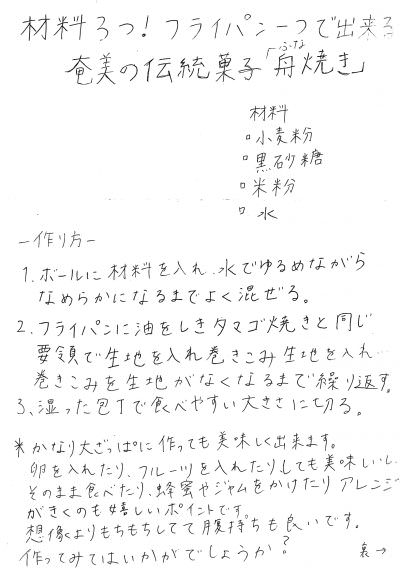 材料3つ!フライパン一つで出来る
奄美の伝統菓子「舟焼き」
ふな
材料
▫小麦粉
▫黒砂糖
▫米粉
▫水
ー作り方ー
1.ボールに材料を入れ、水でゆるめながら
なめらかになるまでよく混ぜる。
2.フライパンに油をしきタマゴ焼きと同じ
要領で生地を入れ巻きこみ生地を入れ…
巻きこみを生地がなくなるまで繰り返す。
3、湿った包丁で食べやすい大きさに切る。
*かなり大ざっぱに作っても美味しく出来ます。
卵を入れたり、フルーツを入れたりしても美味しいし、
そのまま食べたり、蜂蜜やジャムをかけたりアレンジ
がきくのも嬉しいポイントです。
想像よりもちもちしてて腹持ちも良いです。
作ってみてはいかがでしょうか?
裏→